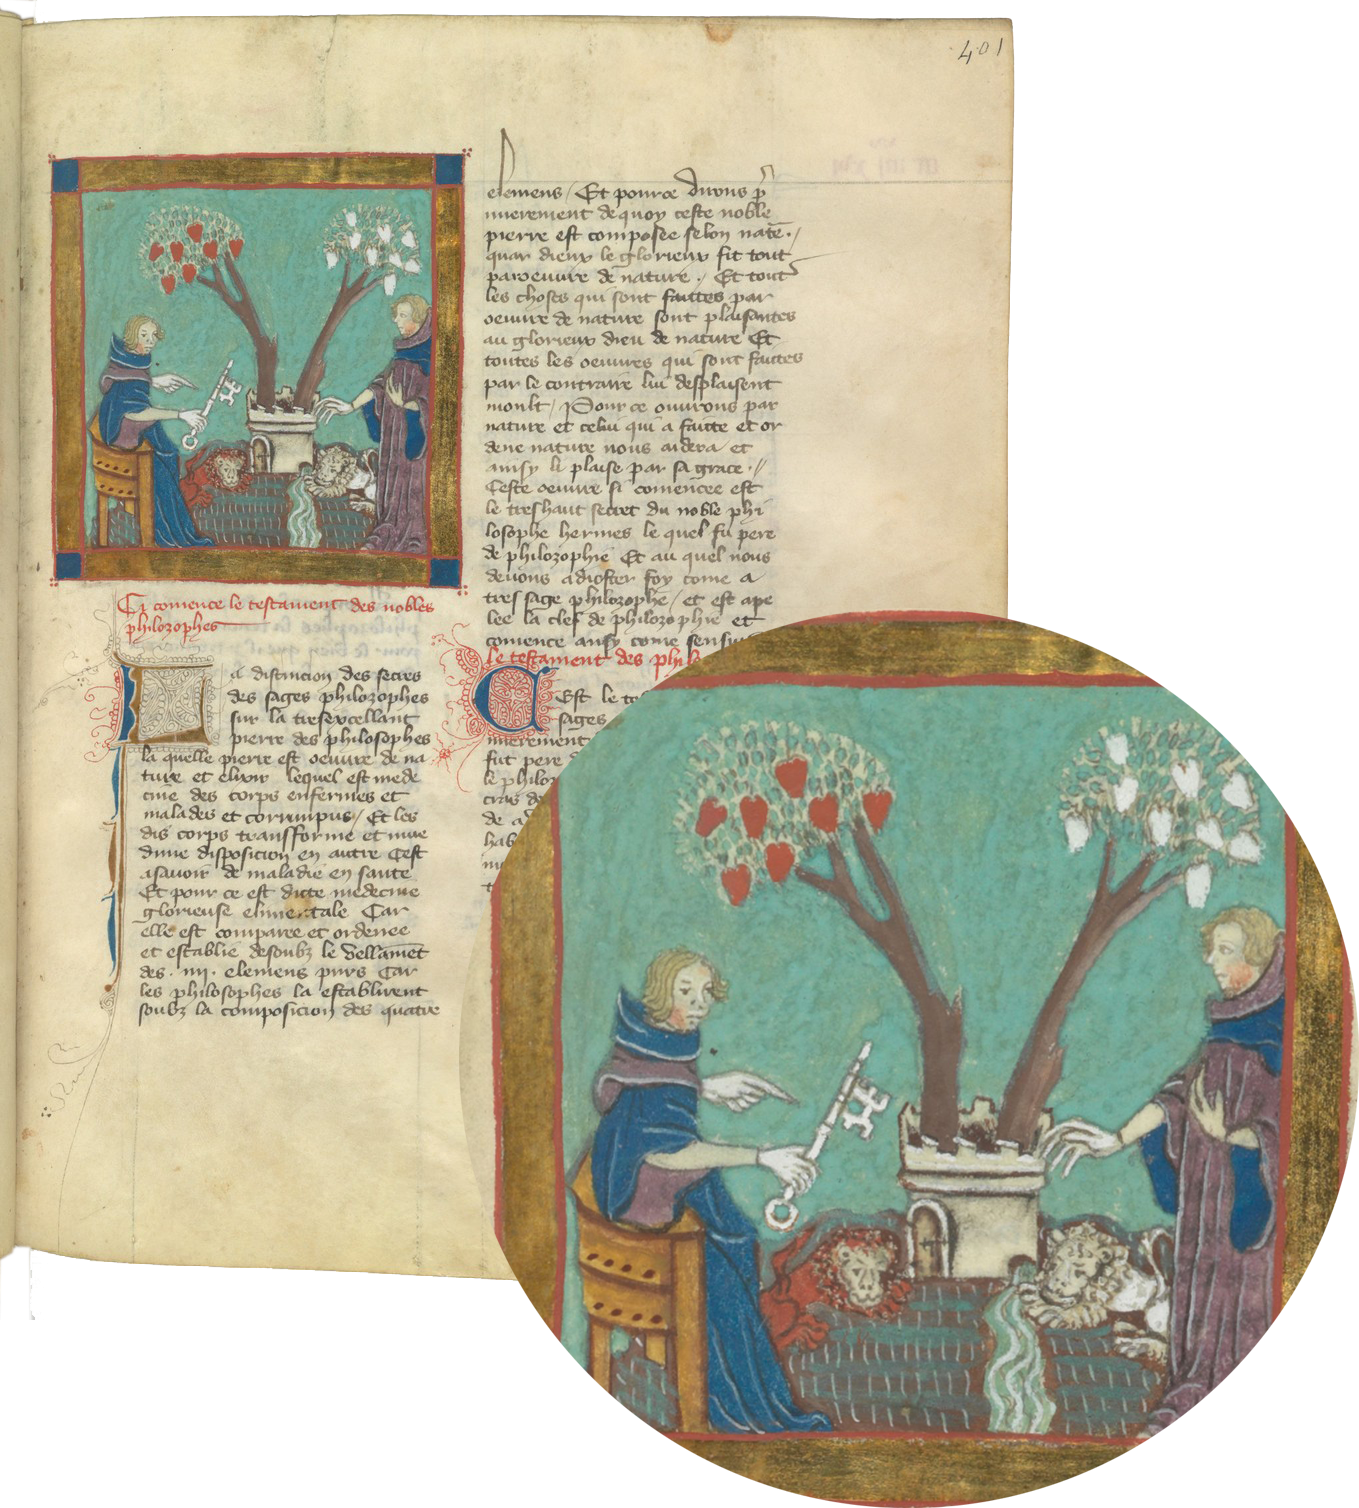 401
Cy comence le testament des nobles
philozophes
La distincion des secres
des sages philozophes
sur la tresexcellant
pierre des philosophes
la quelle pierre est oeuure de na
ture et elixir lequel est mede
cine des corps enfermes et
malades et corrumpus / Et les
dis corps transforme et mue
dune disposicion en autre Cest
asauoir de maladie en sante
Et pour ce est dicte medecine
glorieuse elimentale Car
elle est comparee et ordenee
et establie desoubz le
des . iiij . elemens purs Car
les philosophes la establirent
soubz la composicion des quatre
elemens / Et pource dirons p
mierement de quoy ceste noble
pierre est composee selon nate . /
quar dieux le glorieux fit tout
par oeuure de nature . / Et tout
les choses qui sont faittes par
oeuure de nature sont plaisantes
au glorieux dieu de nature Et
toutes les oeuures qui sont faittes
par le contraire lui desplaisent
moult / Pour ce ouurons par
nature et celui qui a faitte et or
dene nature nous aidera et
ainsy li plaise par sa grace . //
Ceste oeuure si comencee est
le treshaut secret du noble phi
losophe hermes le quel fu pere
de philozophie Et au quel nous
deuons adiouster foy come a
tres sage philozophe / et est ape
lee la clef de philozophie et
comence ainsy come sensuit
le testament des phil
Cest le te
sages
mierement
fut pere d
le philoz
de a
hab